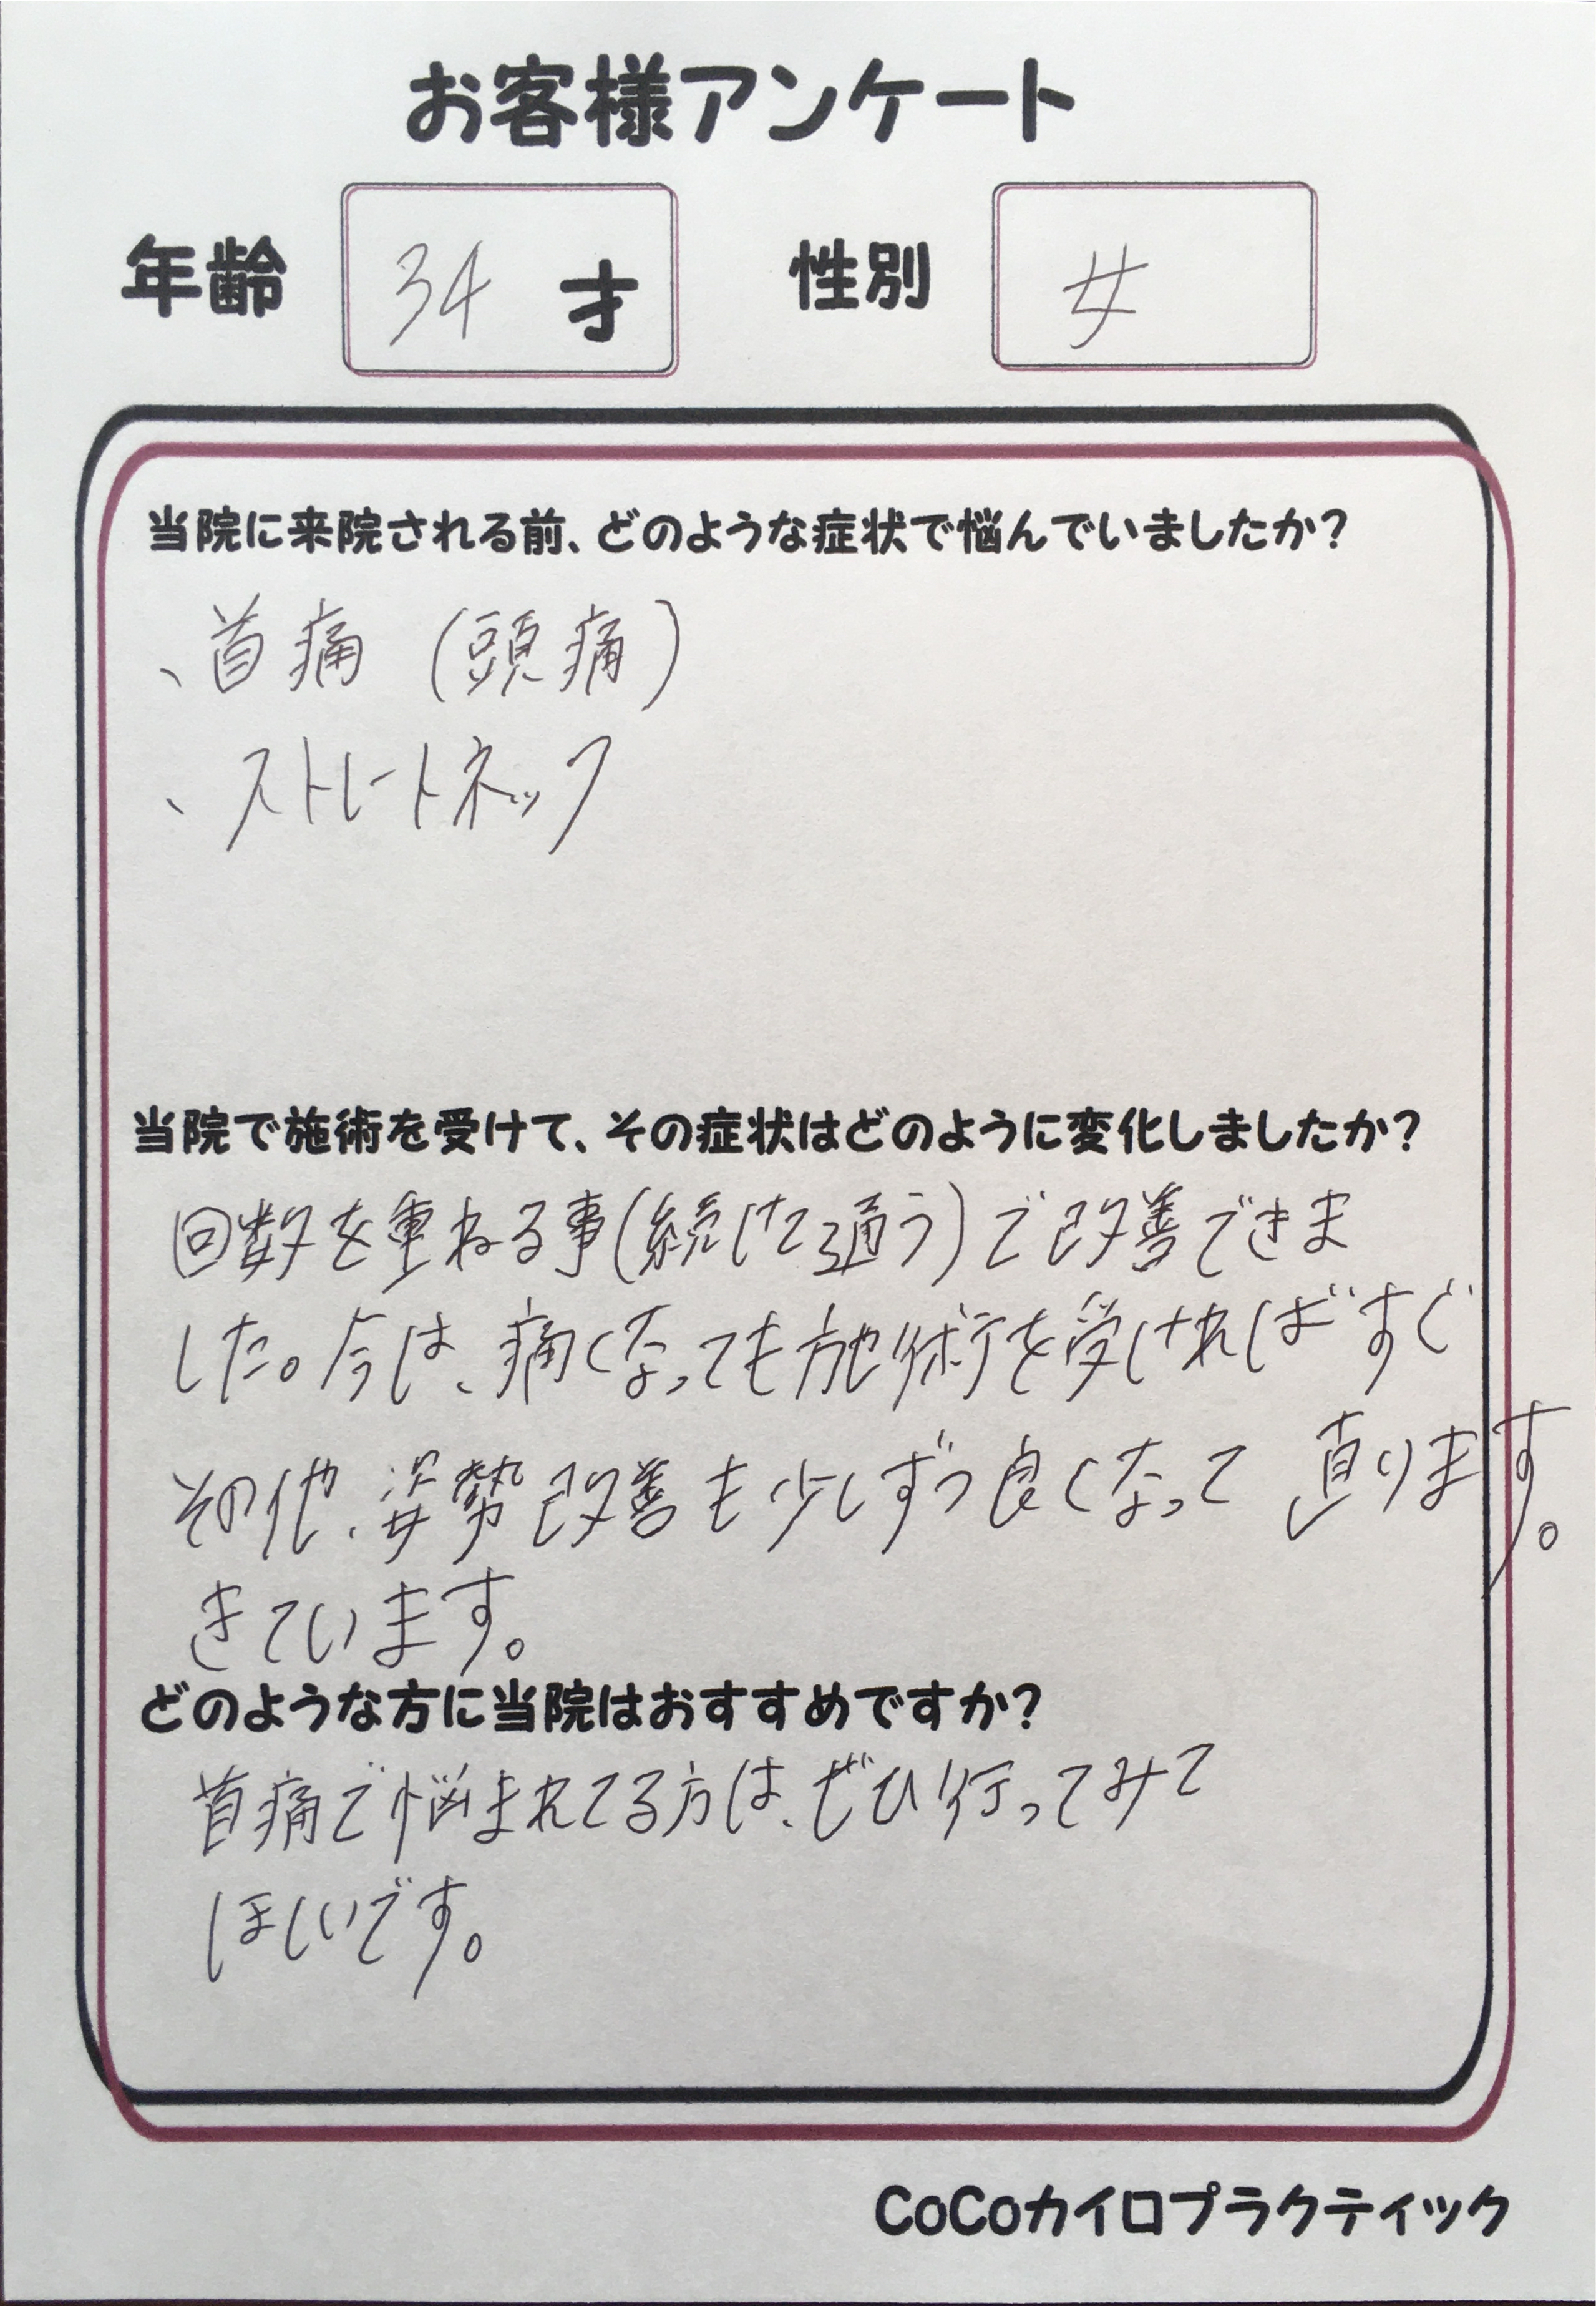 お客様アンケート
年齢 34 才 性別 女
当院に来院される前、どのような症状で悩んでいましたか?
、首痛 (頭痛)
、ストレートネック
当院で施術を受けて、その症状はどのように変化しましたか?
回数を重ねる事(続けて通う)で改善できま
した。今は、痛くなっても施術を受ければすぐ
直ります。
その他、姿勢改善も少しずつ良くなって
きています。
どのような方に当院はおすすめですか?
首痛で悩まれてる方は、ぜひ行ってみて
ほしいです。
CoCoカイロプラクティック